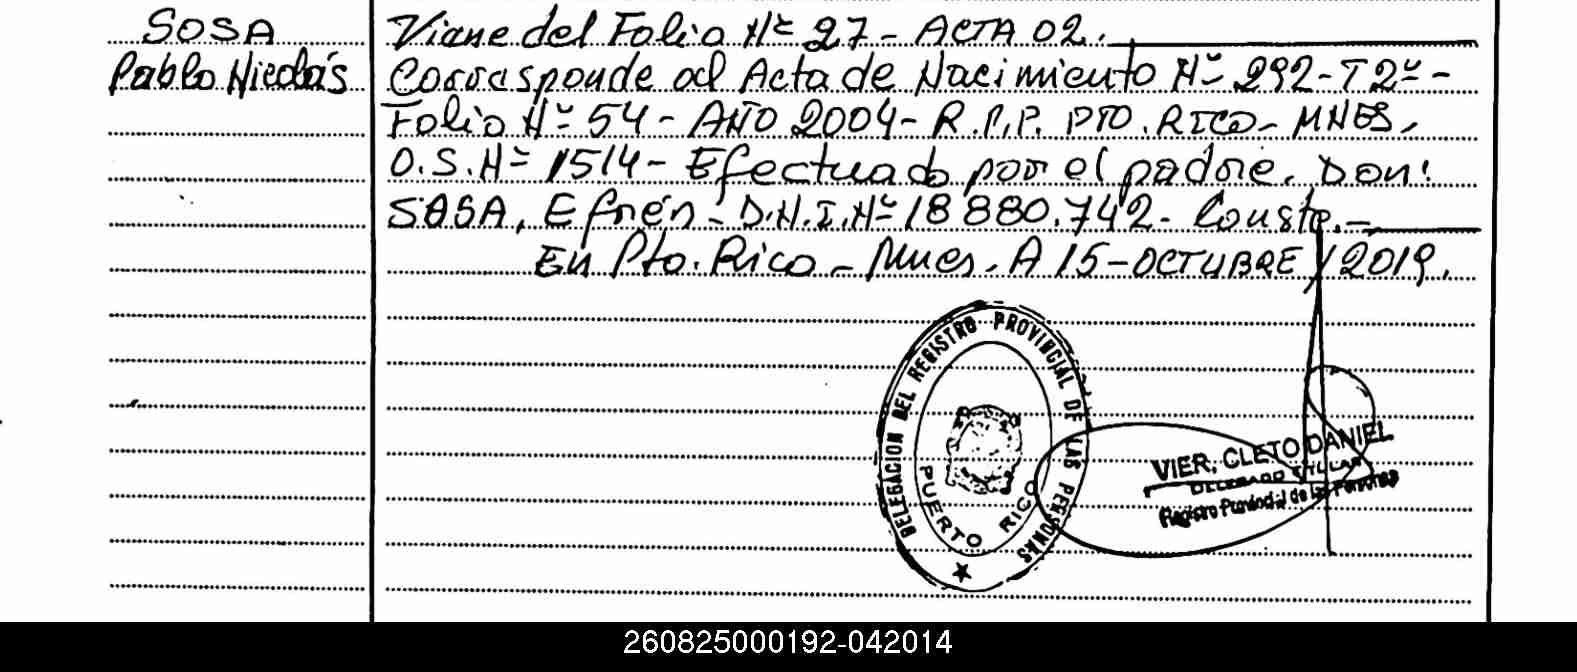 SOSA
Pablo Nicolás
Viene del Folio Nº 27 - ACTA 02.
Corresponde al Acta de Nacimiento Nº 292 - T2º -
Folio Nº 54 - AÑO 2004 - R.P.P. PTO. RICO - MNES.
O.S. Nº 1514 - Efectuado por el padre. Don:
SOSA, Efrén - D.N.I. Nº 18 880.742 - Conste. -
En Pto. Rico - Mnes. A 15 - OCTUBRE / 2019.
DELEGACION DEL REGISTRO PROVINCIAL DE LAS PERSONAS
PUERTO RICO
VIER, CLETO DANIEL
DELEGADO TITULAR
Registro Provincial de las Personas
260825000192-042014